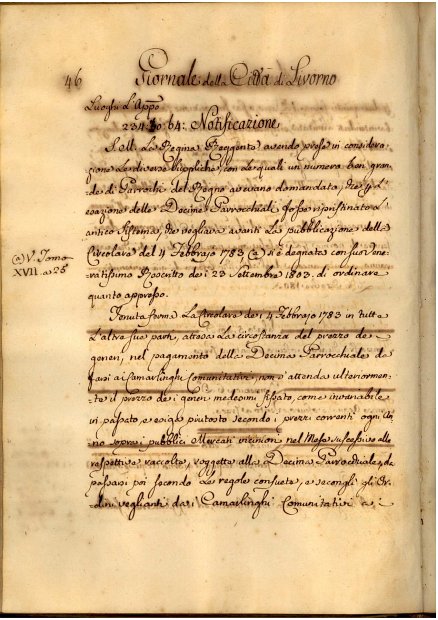 46 Giornale della Città di Livorno
Luoghi d'Appo
234:30:64: Notificazione
S. M. La Regina Reggente avendo prese in considera
zione Le diverse suppliche, con Le quali un numero ben gran
de di Parrochi del Regno avevano domandato, che per l'
esazione delle Decime Parrocchiali fosse ripristinato l'
antico sistema, che vegliava avanti La pubblicazione della
Circolare del 4 Febbrajo 1783 (a) si è degnata con suo Vene
ratissimo Rescritto de i 23 Settembre 1803. di ordinare
quanto appresso.
(a) V. Tomo
XVII. a 26
Tenuta ferma La Circolare de i 4 Febbrajo 1783 in tutte
L'altre sue parti, attesa La circostanza del prezzo de
generi, nel pagamento delle Decime Parrocchiali da
farsi ai Camarlinghi Comunitativi, non s'attenda ulteriormen
te il prezzo dei generi medesimi fissato, come invariabile
in passato, e esiga piutosto secondo i prezzi correnti ogni An
no sopra i pubblici Mercati vicinion nel Mese successivo alle
respettive raccolte, soggette alla Decima Parrocchiale, da
passarsi poi secondo Le regole consuete, e secondo gli Or
dini veglianti dai Camarlinghi Comunitativi ai